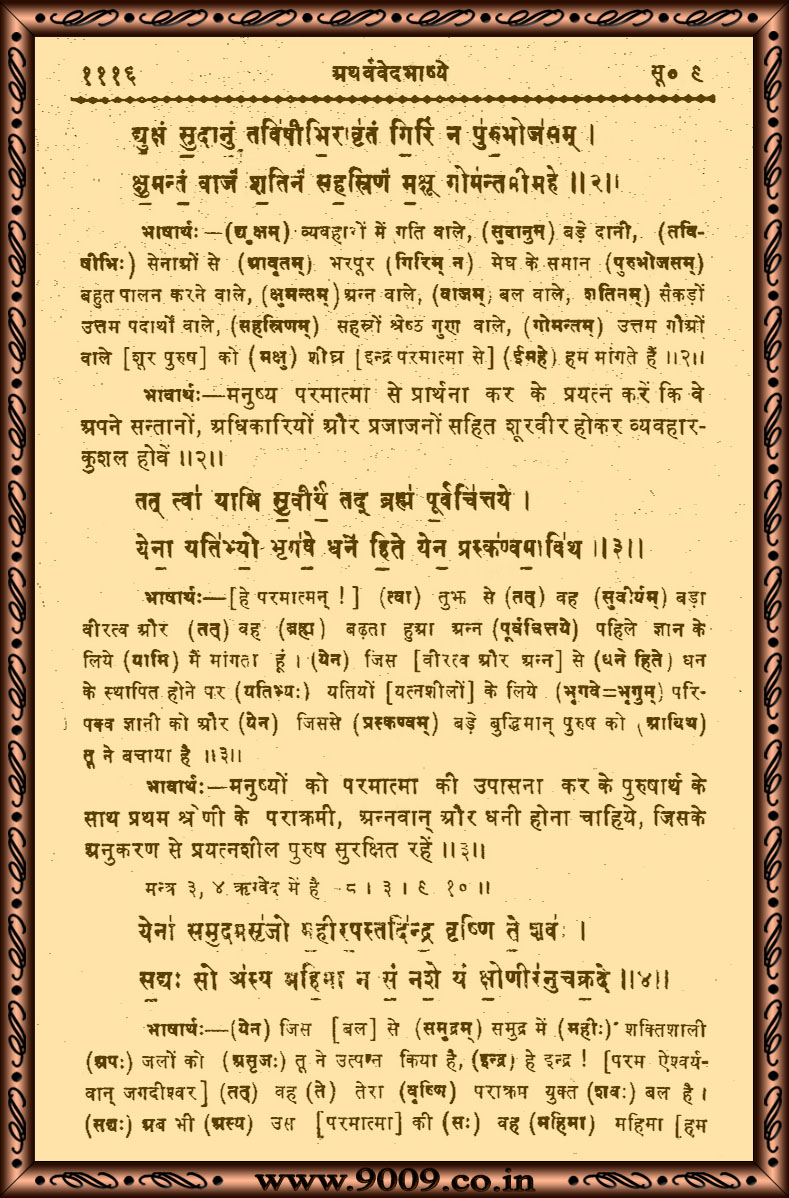 १११६ अथर्ववेदभाष्ये सू० ९
द्युक्षं सुदानुं तविषीभिरावृतं गिरिं न पुरुभोजसम् ।
क्षुमन्तं वाजं शतिनं सहस्रिणं मक्षू गोमन्तमीमहे ॥२॥
भाषार्थः—(द्युक्षम्) व्यवहारों में गति वाले, (सुदानुम्) बड़े दानी, (तवि-
षीभिः) सेनाओं से (आवृतम्) भरपूर (गिरिम् न) मेघ के समान (पुरुभोजसम्)
बहुत पालन करने वाले, (क्षुमन्तम्) अन्न वाले, (वाजम्) बल वाले, शतिनम्) सैकड़ों
उत्तम पदार्थों वाले, (सहस्रिणम्) सहस्रों श्रेष्ठ गुण वाले, (गोमन्तम्) उत्तम गौओं
वाले [शूर पुरुष] को (मक्षु) शीघ्र [इन्द्र परमात्मा से] (ईमहे) हम मांगते हैं ॥२॥
भावार्थः—मनुष्य परमात्मा से प्रार्थना कर के प्रयत्न करें कि वे
अपने सन्तानों, अधिकारियों और प्रजाजनों सहित शूरवीर होकर व्यवहार-
कुशल होवें ॥२॥
तत् त्वा॑ यामि सु॒वीर्यं॒ तद् ब्रह्म॑ पू॒र्वचि॑त्तये ।
येना॒ यति॑भ्यो॒ भृग॑वे॒ धने॑ हि॒ते येन॒ प्रस्क॑ण्व॒मावि॑थ ॥३॥
भाषार्थः—[हे परमात्मन् !] (त्वा) तुझ से (तत्) वह (सुवीर्यम्) बड़ा
वीरत्व और (तत्) वह (ब्रह्म) बढ़ता हुआ अन्न (पूर्वचित्तये) पहिले ज्ञान के
लिये (यामि) मैं मांगता हूं । (येन) जिस [वीरत्व और अन्न] से (धने हिते) धन
के स्थापित होने पर (यतिभ्यः) यतियों [यत्नशीलों] के लिये (भृगवे=भृगुम्) परि-
पक्व ज्ञानी को और (येन) जिससे (प्रस्कण्वम्) बड़े बुद्धिमान् पुरुष को (आविथ)
तू ने बचाया है ॥३॥
भावार्थः—मनुष्यों को परमात्मा की उपासना कर के पुरुषार्थ के
साथ प्रथम श्रेणी के पराक्रमी, अन्नवान् और धनी होना चाहिये, जिसके
अनुकरण से प्रयत्नशील पुरुष सुरक्षित रहें ॥३॥
मन्त्र ३, ४ ऋग्वेद में है -८ । ३ । ९ १० ॥
येना॑ समु॒द्रमसृ॑जो म॒हीर॒पस्तदि॑न्द्र॒ वृष्णि॑ ते॒ शवः॑ ।
स॒द्यः सो अ॑स्य महि॒मा न सं॒ नशे॒ यं क्षो॒णीर॑नुचक्र॒दे ॥४॥
भाषार्थः—(येन) जिस [बल] से (समुद्रम्) समुद्र में (महीः) शक्तिशाली
(अपः) जलों को (असृजः) तू ने उत्पन्न किया है, (इन्द्र) हे इन्द्र ! [परम ऐश्वर्य-
वान् जगदीश्वर] (तत्) वह (ते) तेरा (वृष्णि) पराक्रम युक्त (शवः) बल है ।
(सद्यः) अब भी (अस्य) उस [परमात्मा] की (सः) वह (महिमा) महिमा [हम
www.9009.co.in